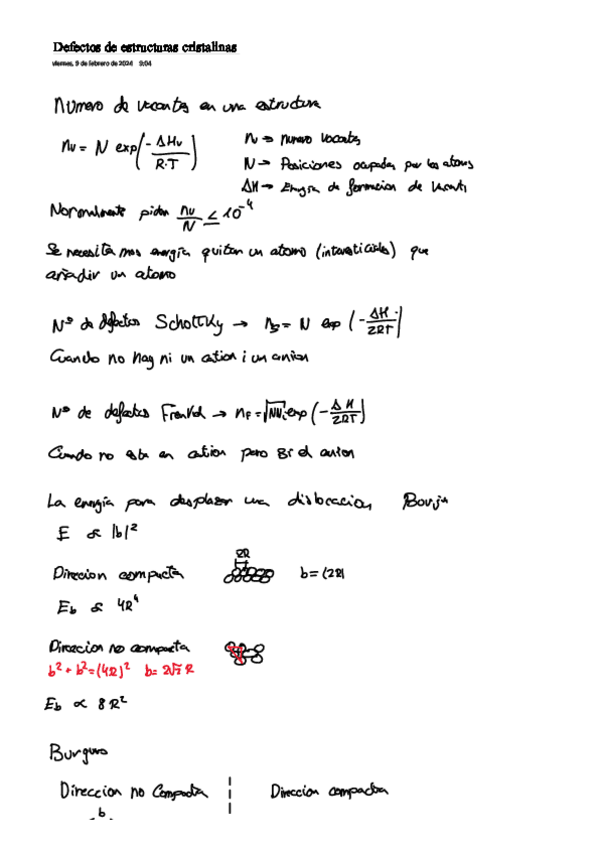 Defectos de estructuras cristalinas
viernes, 9 de febrero de 2024 9:04
Numero de vacantes en una estructura
nv = N exp(-ΔHv/R·T)
n → numero vacantes
N → Posiciones ocupadas por los atomos
ΔH → Energia de formacion de vacante
Normalmente piden nv/N ≤ 10^-4
Se necesita mas energía quitar un atomo (intersticiales) que
añadir un atomo
Nº de defectos Schottky → ns = N exp(-ΔH/2RT)
Cuando no hay ni un cation i un anion
Nº de defectos Frenkel → nF = √NNi exp(-ΔH/2RT)
Cuando no esta en cation pero si el anion
La energía para desplazar una dislocacion,
E ∝ |b|²
2R
Direcion compacta b = (2R)
Eb ∝ 4R⁴
Direccion no compacta
b² + b² = (4R)² b = 2√2 R
Eb ∝ 8R²
Burguro
Direccion no Compacta
Direccion compacta
b